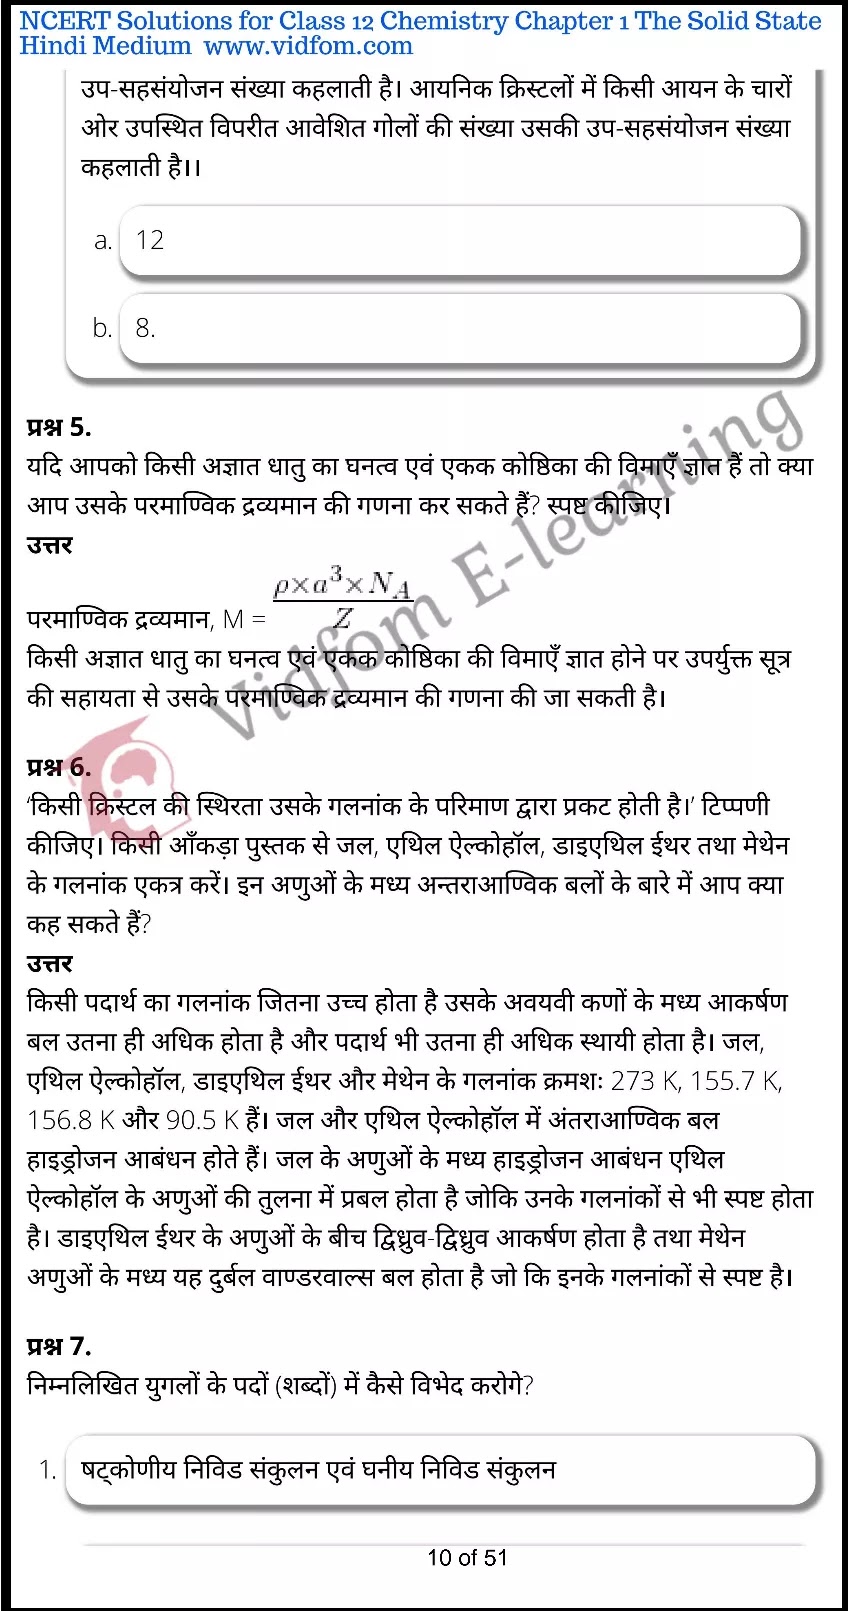 NCERT Solutions for Class 12 Chemistry Chapter 1 The Solid State
Hindi Medium www.vidfom.com
उप-सहसंयोजन संख्या कहलाती है। आयनिक क्रिस्टलों में किसी आयन के चारों
ओर उपस्थित विपरीत आवेशित गोलों की संख्या उसकी उप-सहसंयोजन संख्या
कहलाती है।।
a. 12
b. 8.
प्रश्न 5.
यदि आपको किसी अज्ञात धातु का घनत्व एवं एकक कोष्ठिका की विमाएँ ज्ञात हैं तो क्या
आप उसके परमाण्विक द्रव्यमान की गणना कर सकते हैं? स्पष्ट कीजिए।
उत्तर
परमाण्विक द्रव्यमान, M = \frac{ρ×a³×N_A}{Z}
किसी अज्ञात धातु का घनत्व एवं एकक कोष्ठिका की विमाएँ ज्ञात होने पर उपर्युक्त सूत्र
की सहायता से उसके परमाण्विक द्रव्यमान की गणना की जा सकती है।
प्रश्न 6.
‘किसी क्रिस्टल की स्थिरता उसके गलनांक के परिमाण द्वारा प्रकट होती है।’ टिप्पणी
कीजिए। किसी आँकड़ा पुस्तक से जल, एथिल ऐल्कोहॉल, डाइएथिल ईथर तथा मेथेन
के गलनांक एकत्र करें। इन अणुओं के मध्य अन्तराआण्विक बलों के बारे में आप क्या
कह सकते हैं?
उत्तर
किसी पदार्थ का गलनांक जितना उच्च होता है उसके अवयवी कणों के मध्य आकर्षण
बल उतना ही अधिक होता है और पदार्थ भी उतना ही अधिक स्थायी होता है। जल,
एथिल ऐल्कोहॉल, डाइएथिल ईथर और मेथेन के गलनांक क्रमशः 273 K, 155.7 K,
156.8 K और 90.5 K हैं। जल और एथिल ऐल्कोहॉल में अंतराआण्विक बल
हाइड्रोजन आबंधन होते हैं। जल के अणुओं के मध्य हाइड्रोजन आबंधन एथिल
ऐल्कोहॉल के अणुओं की तुलना में प्रबल होता है जोकि उनके गलनांकों से भी स्पष्ट होता
है। डाइएथिल ईथर के अणुओं के बीच द्विध्रुव-द्विध्रुव आकर्षण होता है तथा मेथेन
अणुओं के मध्य यह दुर्बल वाण्डरवाल्स बल होता है जो कि इनके गलनांकों से स्पष्ट है।
प्रश्न 7.
निम्नलिखित युगलों के पदों (शब्दों) में कैसे विभेद करोगे?
1. षट्कोणीय निविड संकुलन एवं घनीय निविड संकुलन
10 of 51
Vidfom E-learning